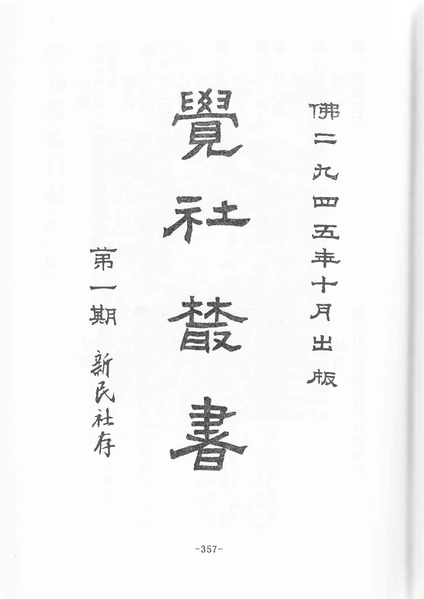 佛二九四五年十月出版
覺社叢書
第一期 新民社存
-357-